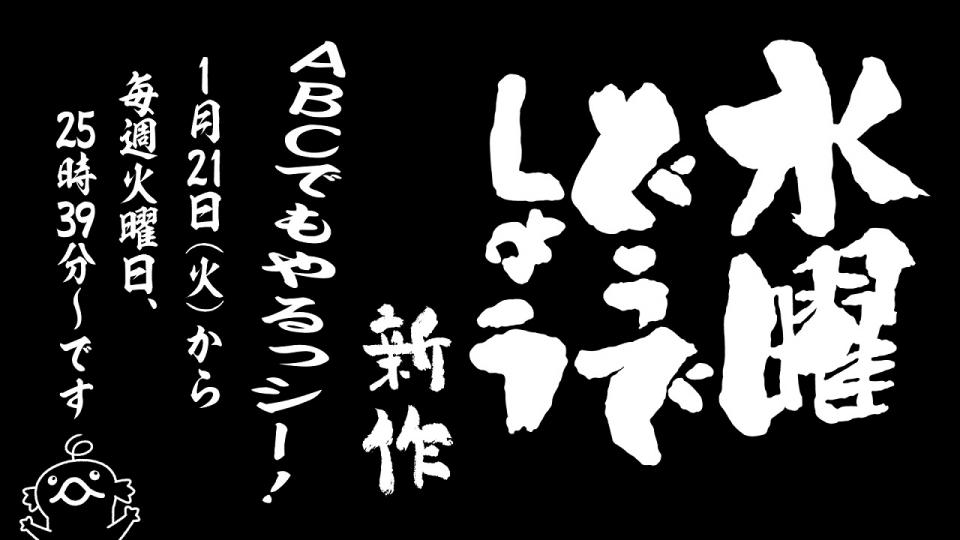 水曜
どうで
しょう
新作
ABCでもやるっシー!
1月21日(火)から
毎週火曜日、
25時39分~です